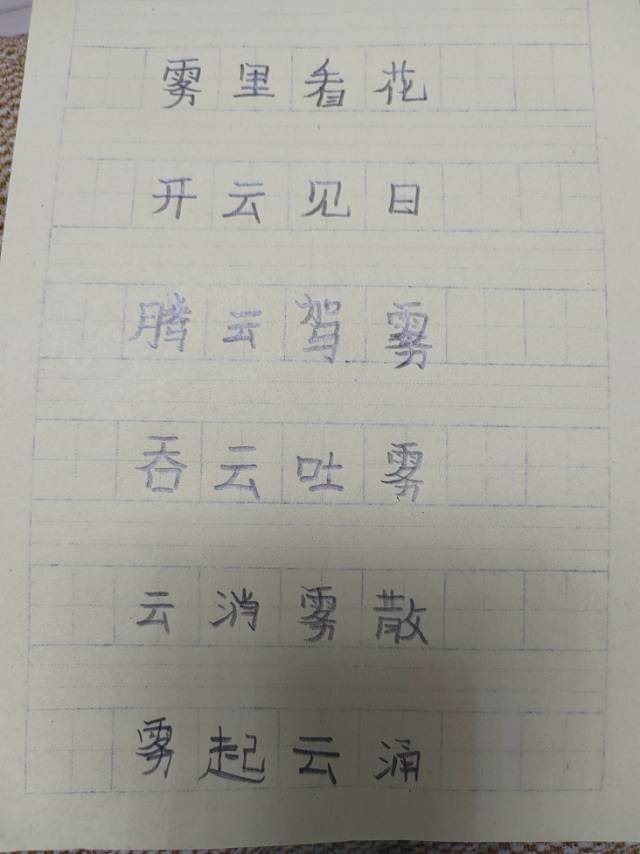 雾里看花
开云见日
腾云驾雾
吞云吐雾
云消雾散
雾起云涌